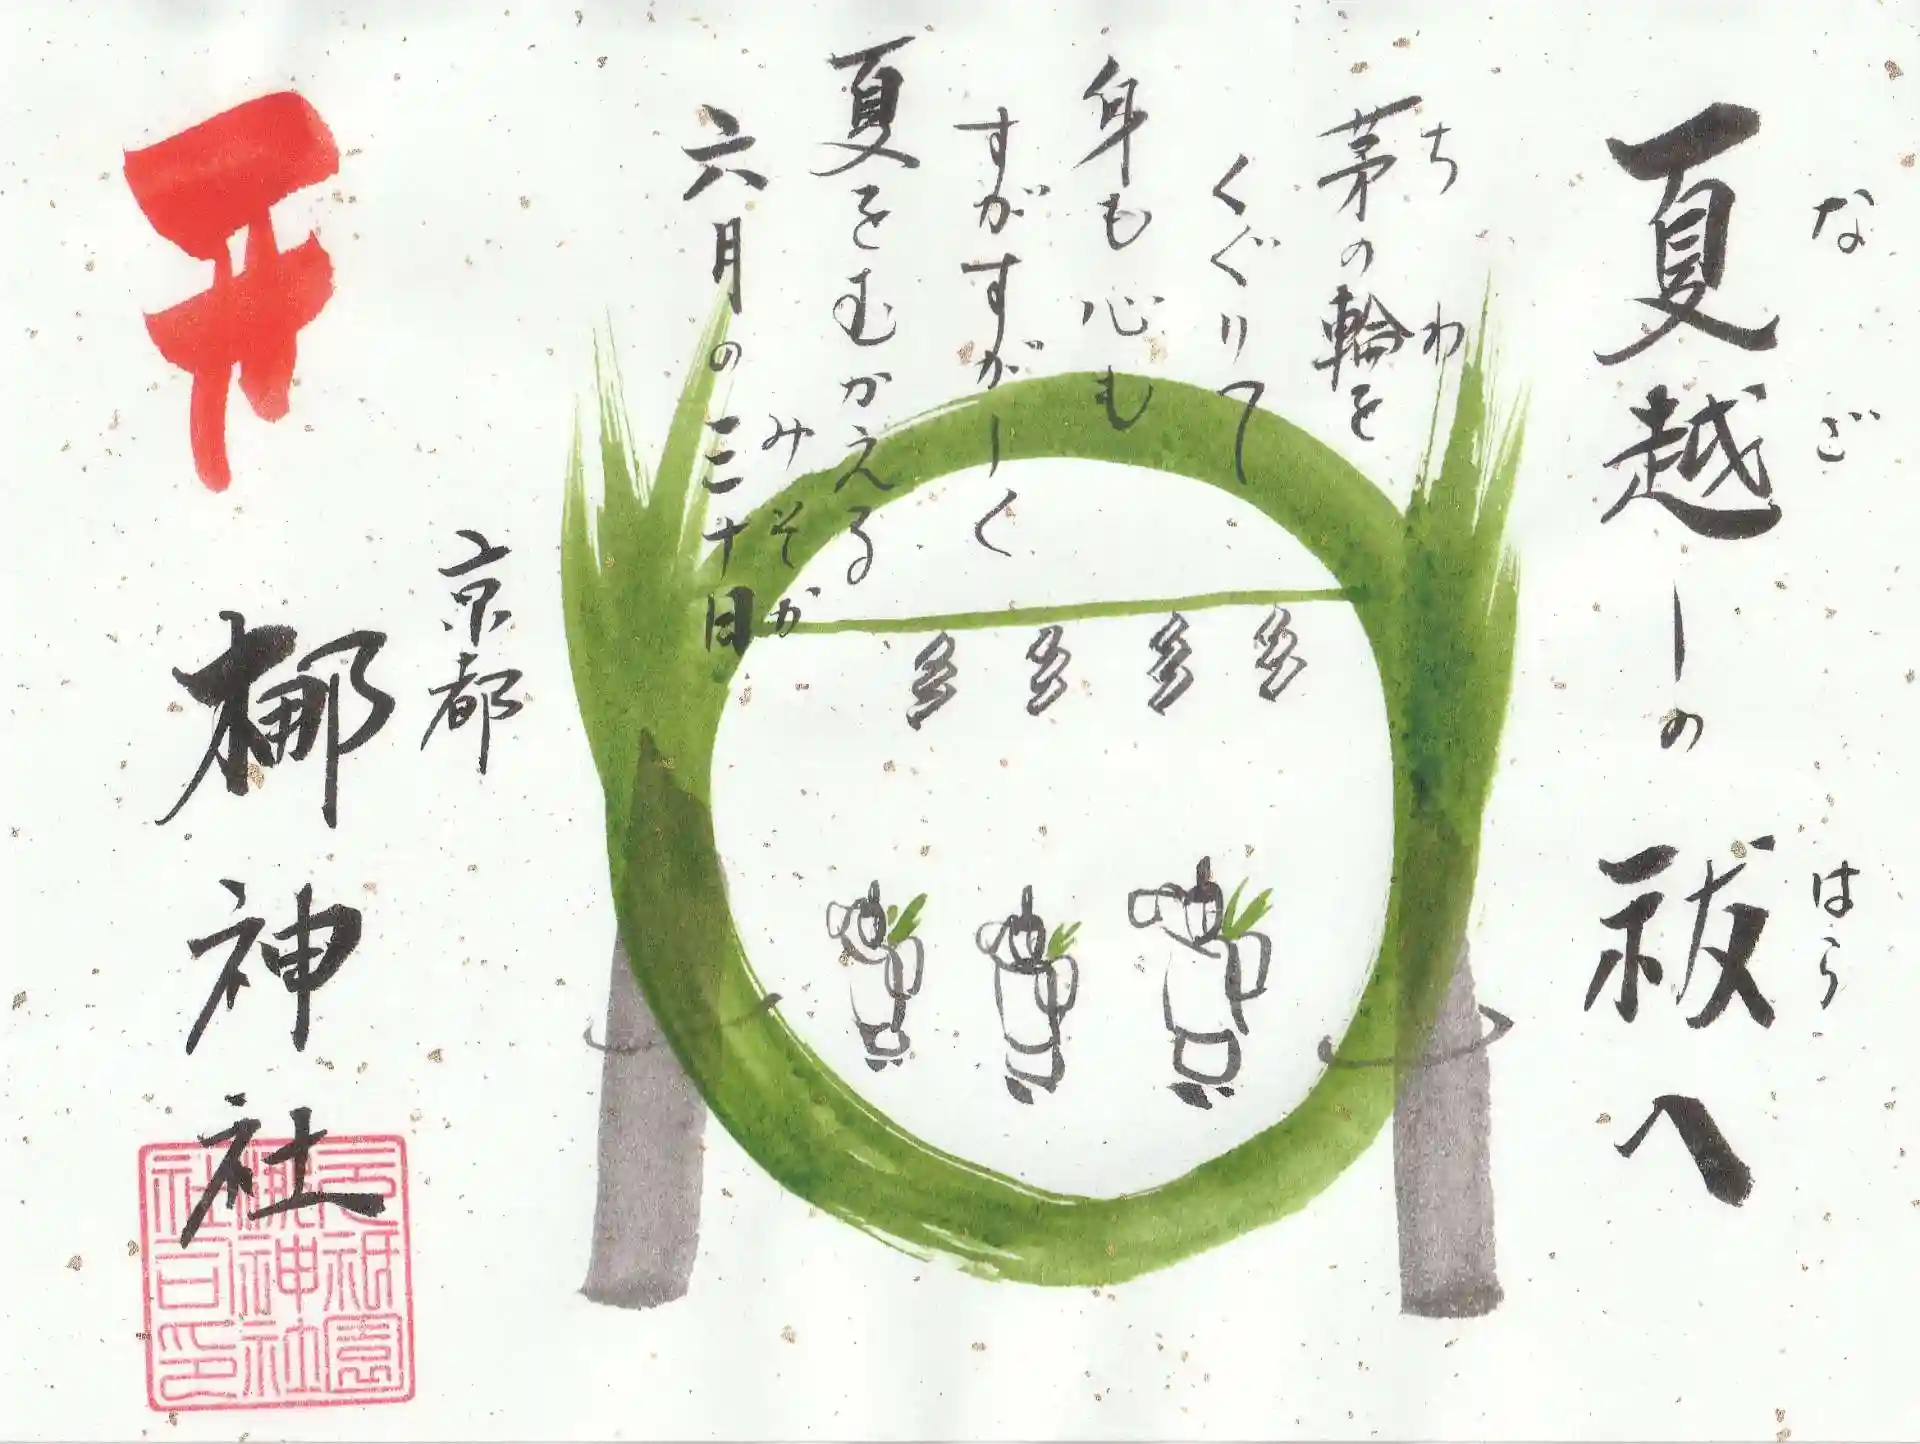 夏越しの祓へ
なご
はら
茅の輪を
ちわ
くぐりて
身も心も
すがすがしく
夏をむかえる
六月の三十日
みそか
京都
梛神社
元祇園
梛神社
社司印